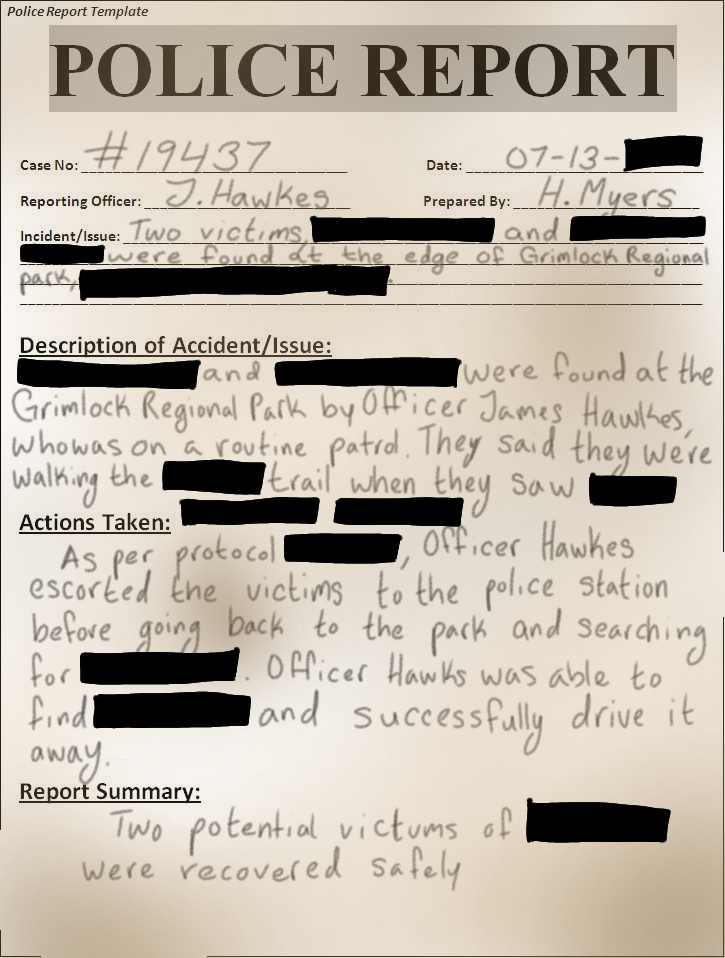 Police Report Template
POLICE REPORT
Case No: #19437 Date: 07-13-
Reporting Officer: J. Hawkes Prepared By: H. Myers
Incident/Issue: Two victims, and
were found at the edge of Grimlock Regional
park, .
Description of Accident/Issue:
and were found at the
Grimlock Regional Park by Officer James Hawkes,
who was on a routine patrol. They said they were
walking the trail when they saw
Actions Taken:
As per protocol , Officer Hawkes
escorted the victims to the police station
before going back to the park and searching
for . Officer Hawks was able to
find and successfully drive it
away.
Report Summary:
Two potential victums of
were recovered safely